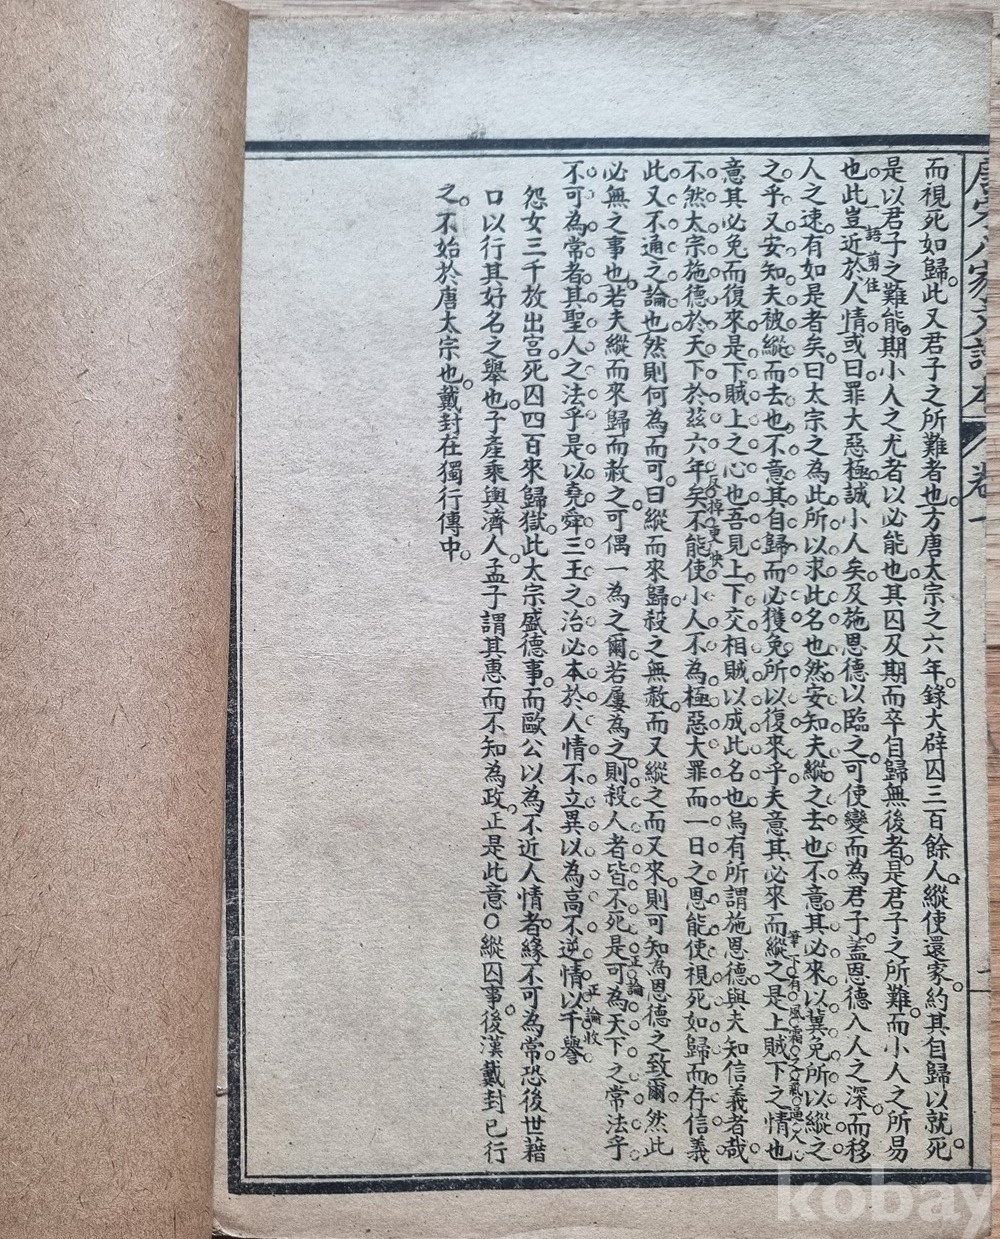 唐宋八家文讀本 卷十
而視死如歸。此又君子之所難者也。方唐太宗之六年。錄大辟囚三百餘人。縱使還家。約其自歸以就死。
是以君子之難能。期小人之尤者以必能也。其囚及期而卒自歸無後者。是君子之所難。而小人之所易
也。此豈近於人情。或曰。罪大惡極。誠小人矣。及施恩德以臨之。可使變而為君子。蓋恩德入人之深。而移
一語剪住
人之速。有如是者矣。曰太宗之為此。所以求此名也。然安知夫縱之去也。不意其必來以冀免。所以縱之
之乎。又安知夫被縱而去也。不意其自歸而必獲免。所以復來乎。夫意其必來而縱之。是上賊下之情也
筆下有風霜之氣逼人
意其必免而復來。是下賊上之心也。吾見上下交相賊以成此名也。烏有所謂施恩德與夫知信義者哉
不然。太宗施德於天下。於茲六年矣。不能使小人不為極惡大罪。而一日之恩。能使視死如歸。而存信義
反掉更快
此又不通之論也。然則何為而可。曰縱而來歸。殺之無赦。而又縱之。而又來。則可知為恩德之致爾。然此
必無之事也。若夫縱而來歸而赦之。可偶一為之爾。若屢為之。則殺人者皆不死。是可為天下之常法乎
正論
不可為常者。其聖人之法乎。是以堯舜三王之治。必本於人情。不立異以為高。不逆情以干譽
正論收
怨女三千放出宮。死囚四百來歸獄。此太宗盛德事。而歐公以為不近人情者。緣不可為常。恐後世藉
口以行其好名之舉也。子產乘輿濟人。孟子謂其惠而不知為政。正是此意○縱囚事。後漢戴封已行
之。不始於唐太宗也。戴封在獨行傳中。
kobay